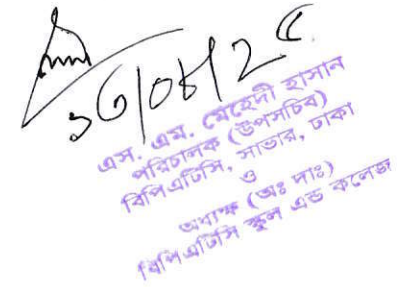 ১৩/০৪/২৫
এস. এম. মেহেদী হাসান
পরিচালক (উপসচিব)
বিপিএটিসি, সাভার, ঢাকা
ও
অধ্যক্ষ (অঃ দাঃ)
বিপিএটিসি স্কুল এন্ড কলেজ